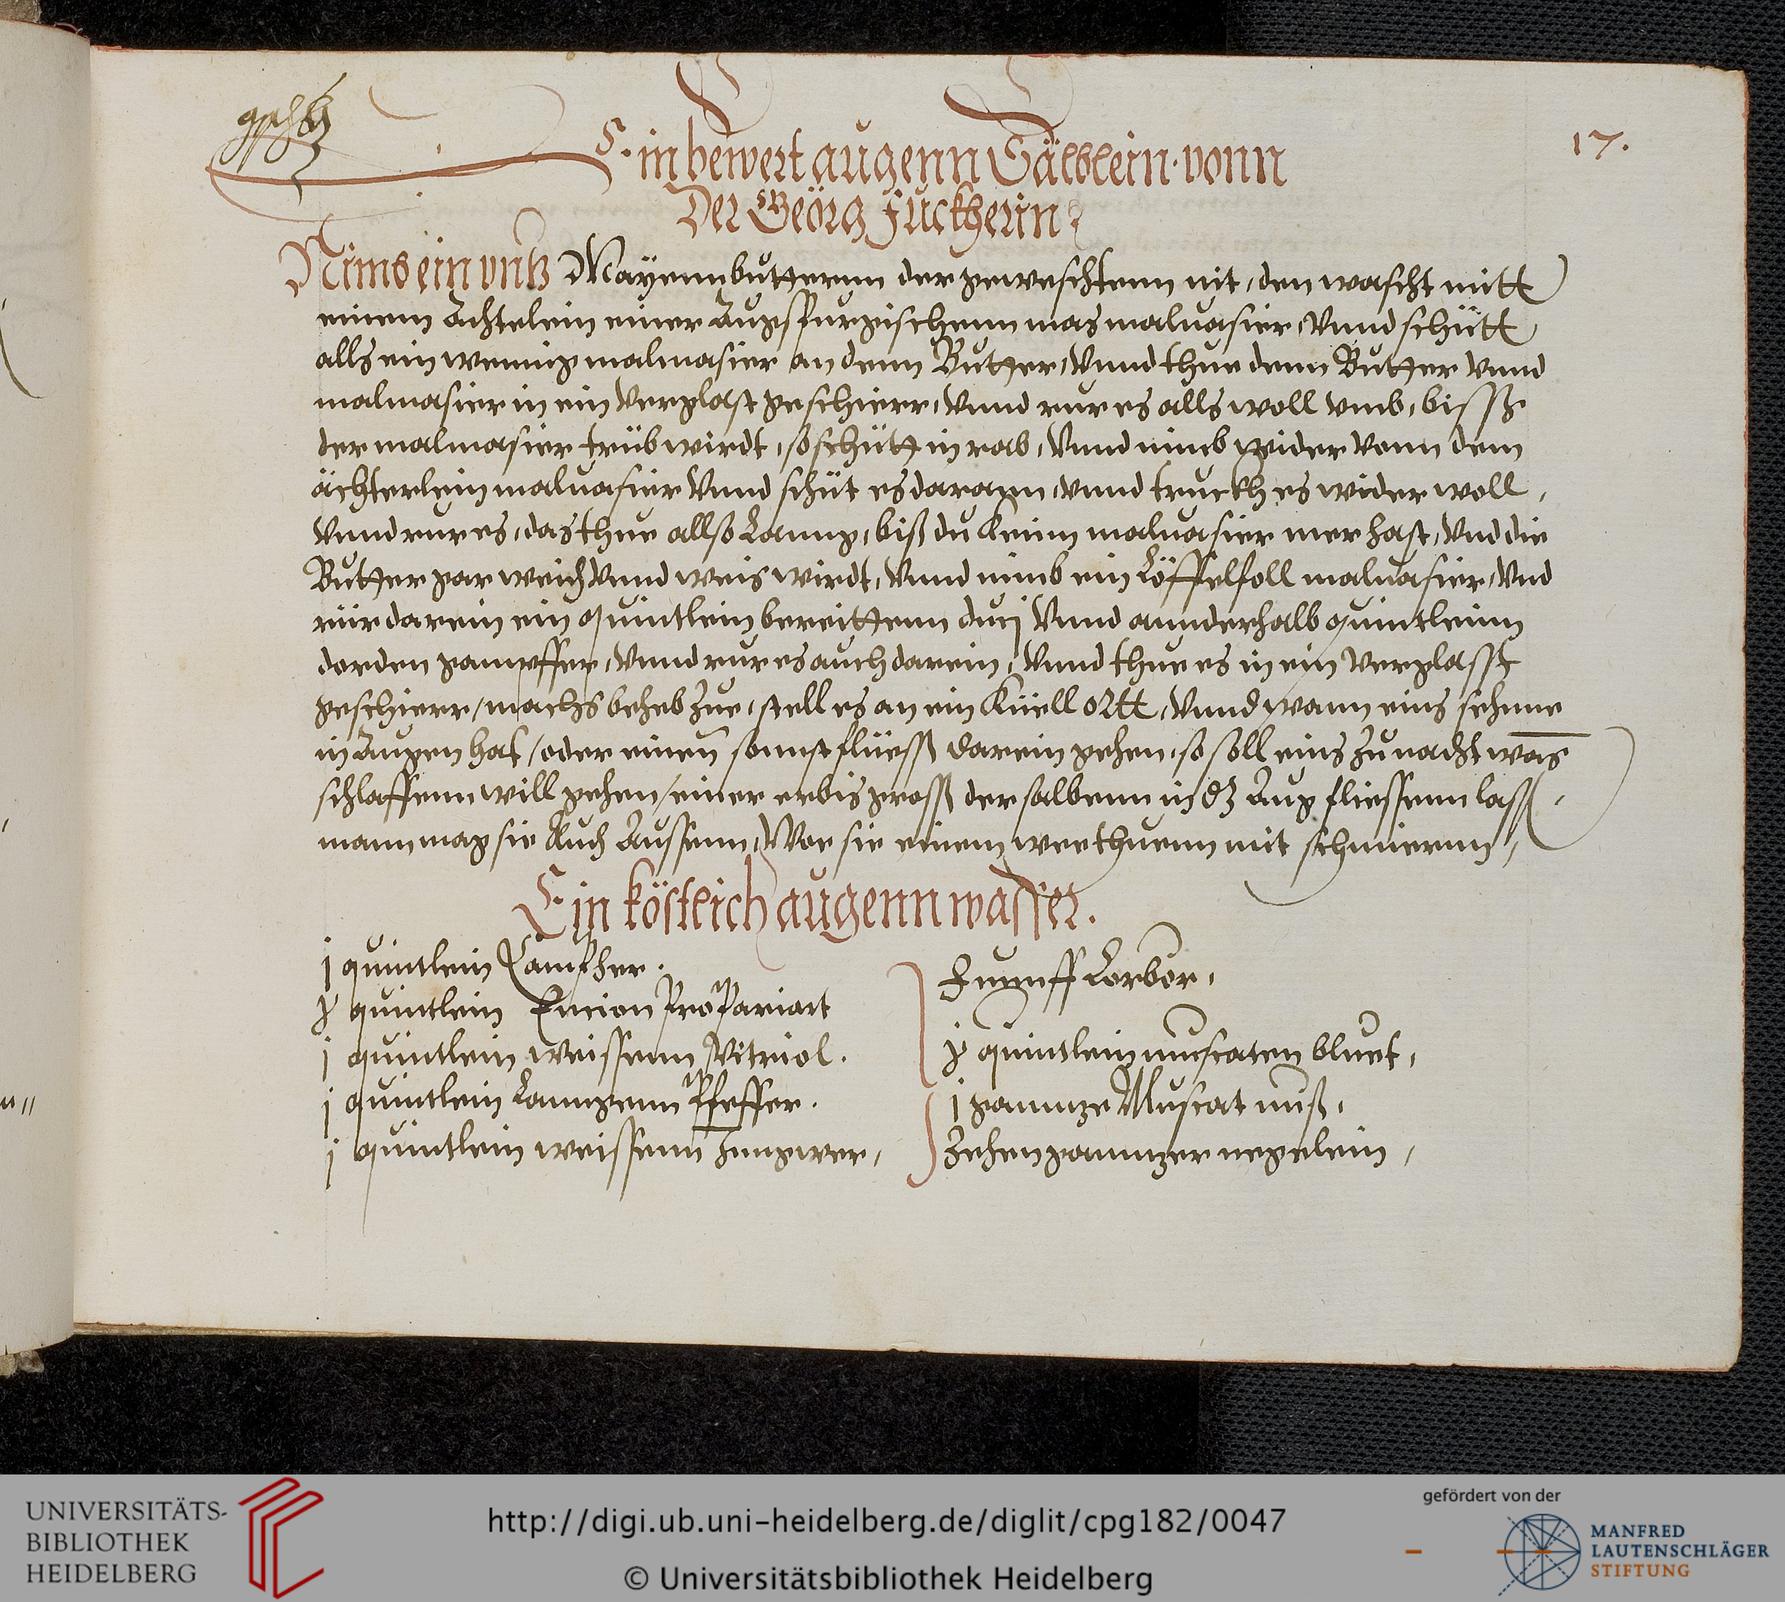 17.
Ein bewert augenn Sälblein vonn
Der Geörg fuckherin
Nims ein vntz Mayenn butterenn der geweschtenn nit, den wascht mitt
einem Achtelein einer Augspurgischenn mas maluasier, Vnnd schütt
alls ein wennig malmasier an denn Butter, Vnnd thue denn Butter Vnnd
malmasier in ein Verglast geschierr, Vnnd rur es alls woll vmb, bisß
der malmasier trüb wirdt, so schütt in rab, Vnnd nimb wider vonn dem
ächterlein maluasier Vnnd schüt es darann, vnnd truckh es wider woll,
Vnnd rur es, das thue allso Lanng, biß du kenn maluasier mer hast, Vnd die
Butter gar weich Vnnd weis wirdt, Vnnd nimb ein Löffelfoll maluasier, Vnd
rür darein ein quintlein bereittenn duci Vnnd annderhalb quintleinn
dorden gampffer, Vnnd rur es auch darein, Vnnd thue es in ein Verglasst
geschierr, machs beheb zue, stell es an ein Küell ortt, Vnnd wann eins sehme
in Augen hat, oder einen sonnst flüess darein gehen, so soll eins zu nacht wans
schlaffenn will gehen, einer erbis gross der salbenn in dz Aug fliessenn lass,
mann mag sie Auch Aussenn, Wor sie einem wee thuenn mit schmierenn,
Ein köstlich augenn wasser.
j quintlein Campher.
j quintlein Tucion Propariart
j quintlein weissenn Vitriol.
j quintlein Lanngenn Pfeffer.
j quintlein weissenn Jnngwer,
Funnff Lorbor,
j quintlein muscaten bluet,
j gannze Muscat nuß,
Zehen gannzer negelein,
UNIVERSITÄTS-
BIBLIOTHEK
HEIDELBERG
http://digi.ub.uni-heidelberg.de/diglit/cpg182/0047
© Universitätsbibliothek Heidelberg
gefördert von der
MANFRED
LAUTENSCHLÄGER
STIFTUNG